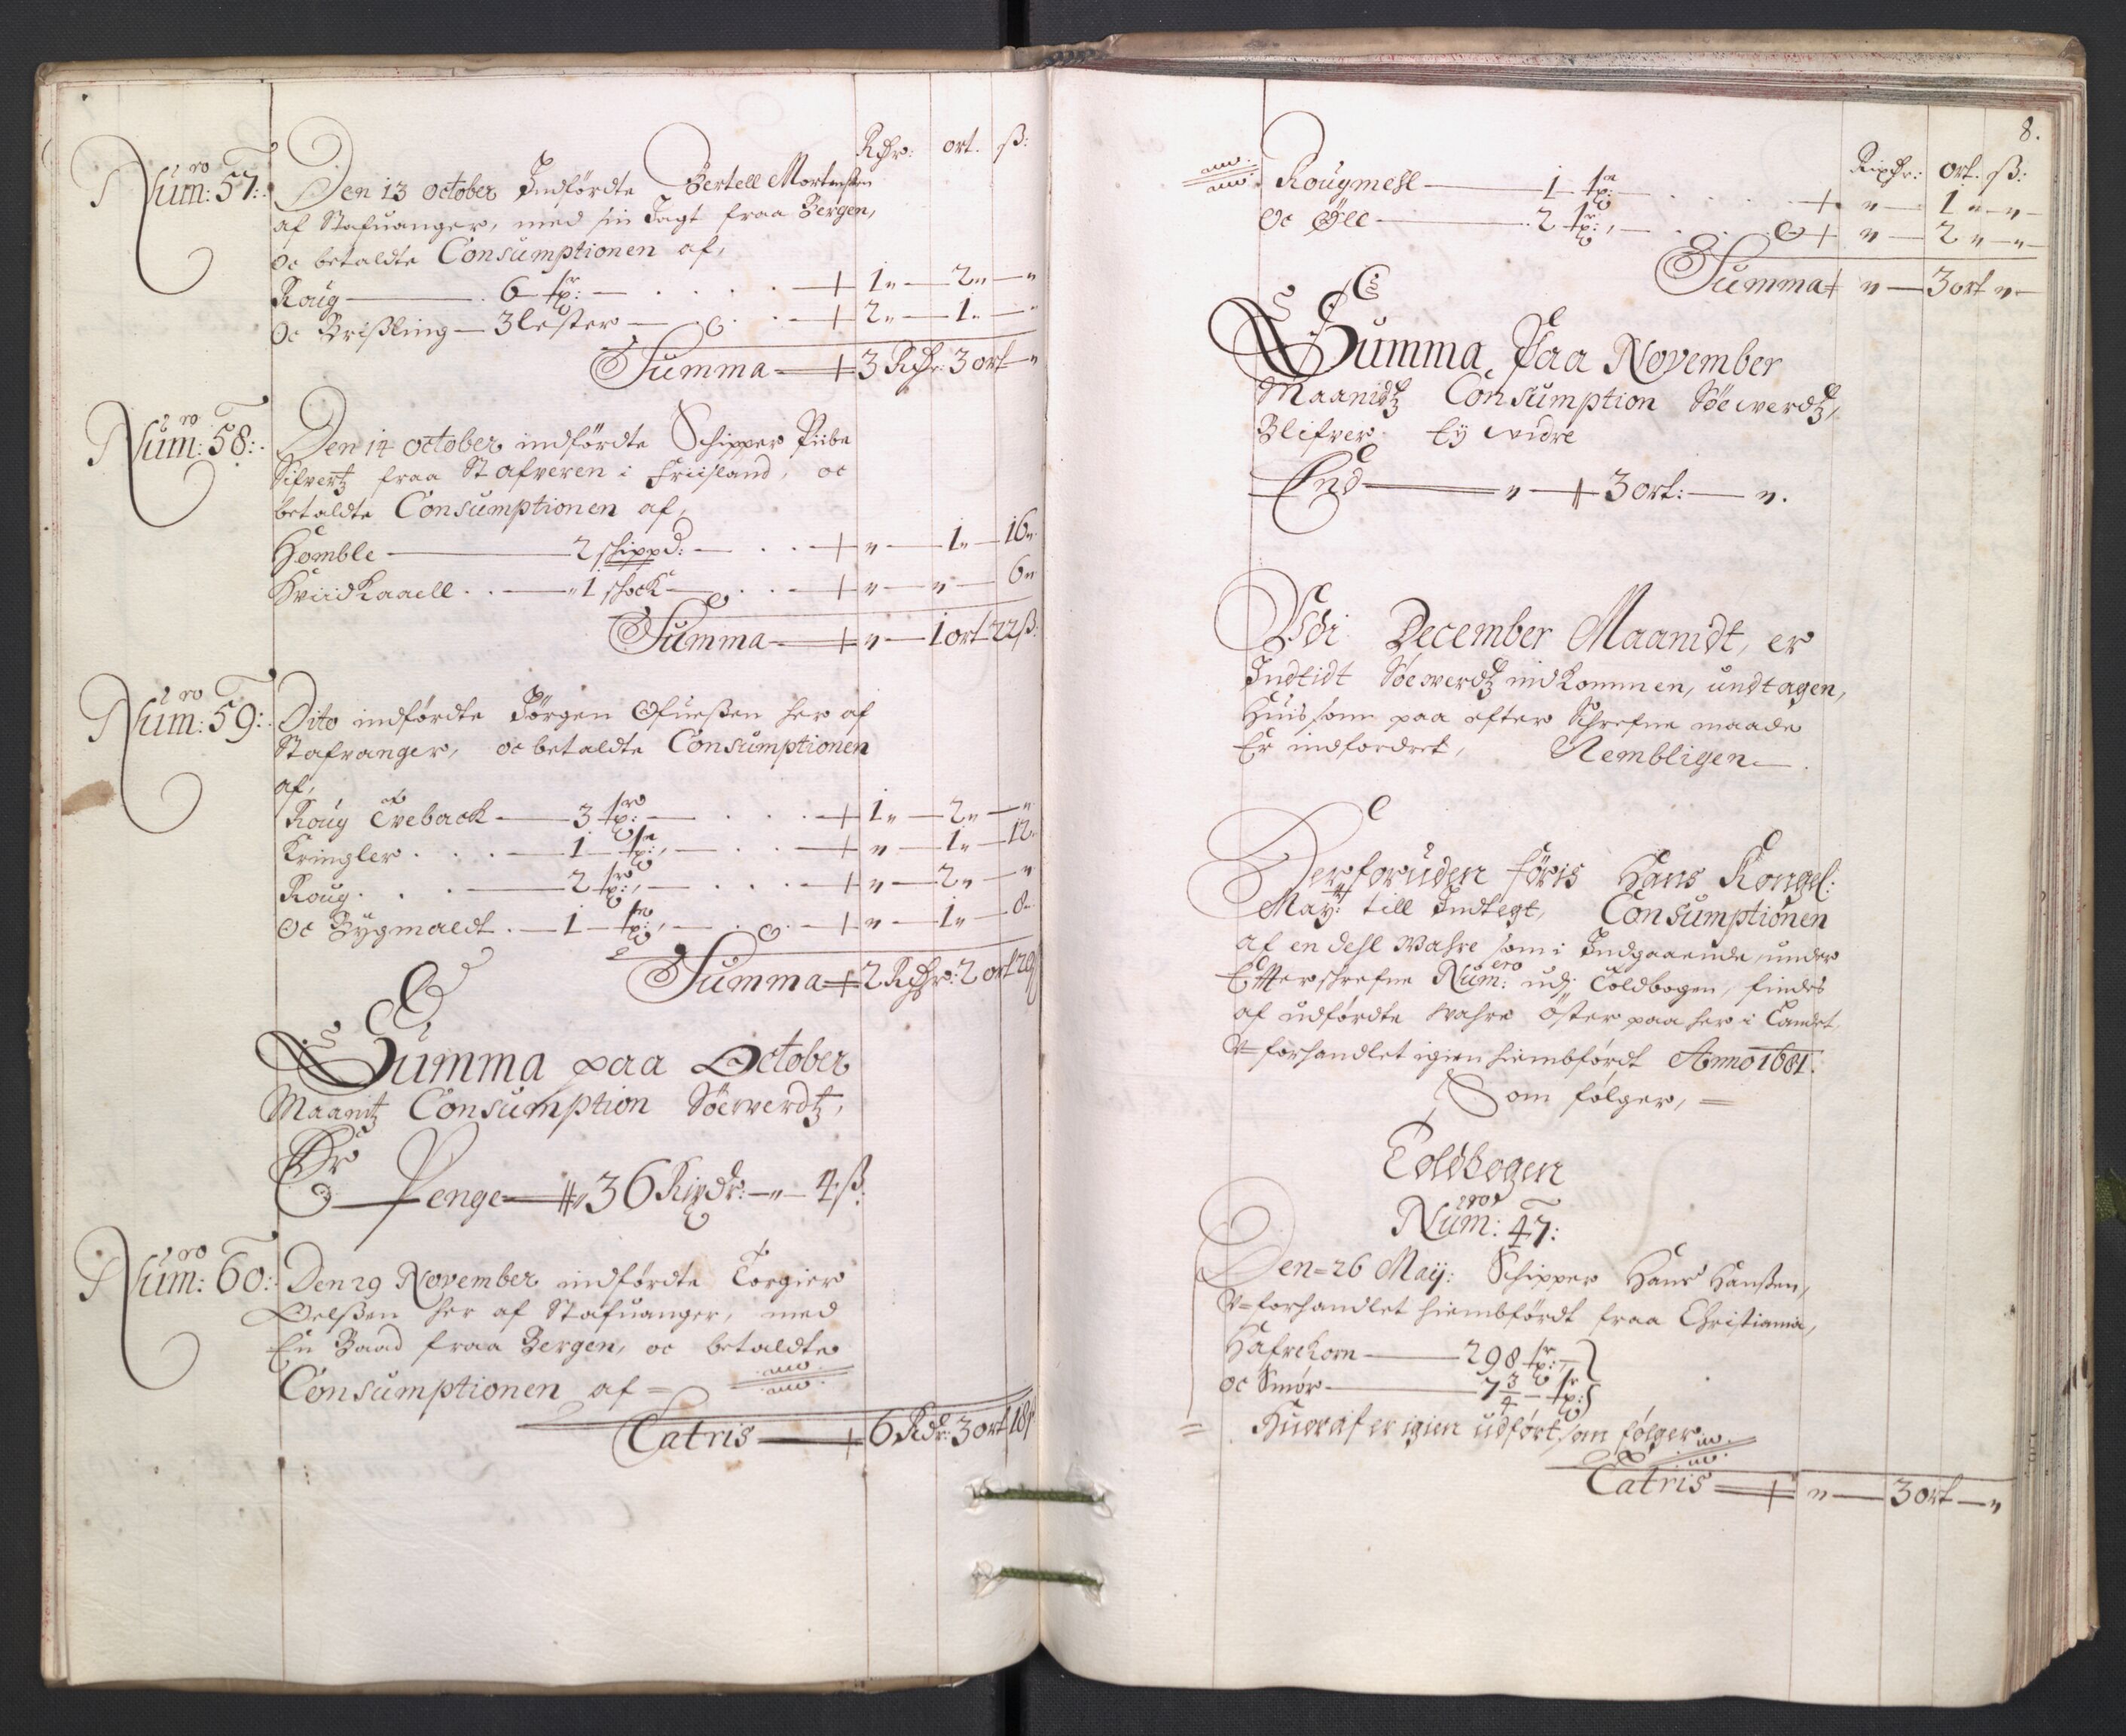 Rdr: ort. ß:
Num:ro 57: Den 13 October Indførdte Bertell Mortensen
af Stafuanger, med sin Jagt fraa Bergen,
oc betaldte Consumptionen af,
Roug 6 tr: 1 „ 2 „ „
oc Brißling 3 lester 2 „ 1 „
Summa 3 Rdr: 3 ort „
Num:ro 58: Den 14 October indførdte Schipper Piibe
Sifvertz fraa Stafveren i Friisland, oc
betaldte Consumptionen af,
Homble 2 schippd: „ 1 „ 16 „
Hviidkaaell 1 schock „ „ 6 „
Summa „ 1 ort 22 ß:
Num:ro 59: Dito indførdte Jörgen Ofueßen her af
Stafvanger, oc betaldte Consumptionen
af,
Roug Tveback 3 tr: 1 „ 2 „ „
Kringler 1 te: „ 1 „ 12 „
Roug 2 tr: „ 2 „ „
oc Bygmaldt 1 te: „ 1 „ 8 „
Summa 2 Rdr: 2 ort 20 ß
Summa paa October
Maanitz Consumption Söeverdtz,
Er
Penge 36 Rixdr: „ 4 ß:
Num:ro 60: Den 29 November indførdte Torgier
Oelßen her af Stafuanger, med
En Baad fraa Bergen, oc betaldte
Consumptionen af
Latris 6 Rdr: 3 ort 18 ß
8.
Rixdr: ort. ß:
Rougmehl 1 te: „ 1 „ „
oc Øll 2 tr: „ 2 „ „
Summa „ 3 ort „
Summa Paa November
Maanidtz Consumption Söeverdtz,
Blifver Ey vidre
End „ 3 ort: „.
Udi December Maanidt, er
Indtidt Söeverdtz indkommen, undtagen,
Huis som paa efter Schrefne maade
Er indfordret, Nembligen
Derforuden föris Hans Kongel:
Mayt: till Indtegt, Consumptionen
af en dehl Wahre som i Indgaaende, under
Effterschrefne Num:ero udj Toldbogen, findes
af udførdte Wahre Öster paa her i Landet,
V=forhandlet igien hiembført Anno 1681:
Som følger,
Toldbogen
Num:ero 47:
Den 26 Maij: Schipper Hans Hanßen,
V=forhandlet hiembførdt fraa Christiania,
Hafrekorn 298 tr:
oc Smör 7 3/4 tr:
Hueraf er igien udført som følger
Latris „ 3 ort „